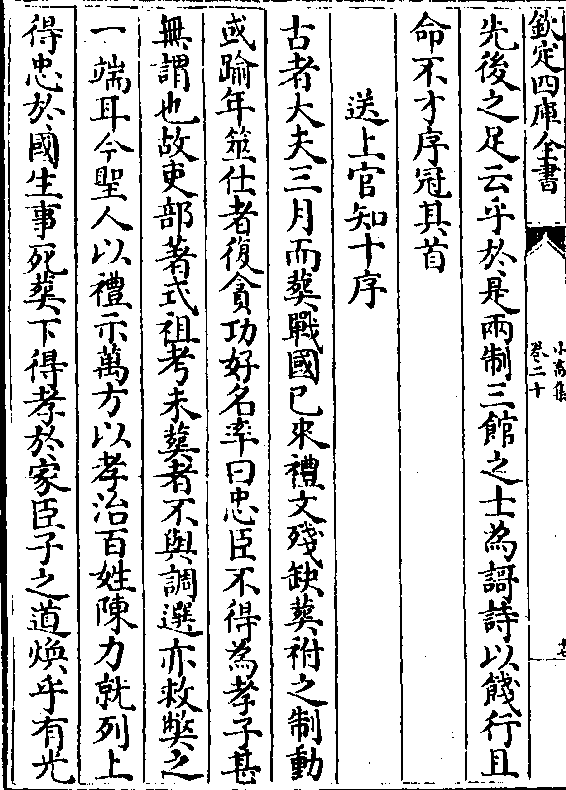 欽定四庫全書
小畜集
卷二十
先後之足云乎於是兩制三館之士為謌詩以餞行且
命不才序冠其首
送上官知十序
古者大夫三月而葬戰國已來禮文殘缺葬祔之制動
或踰年筮仕者復貪功好名率曰忠臣不得為孝子甚
無謂也故吏部著式祖考未葬者不與調選亦救弊之
一端耳今聖人以禮示萬方以孝治百姓陳力就列上
得忠於國生事死葬下得孝於家臣子之道煥乎有光